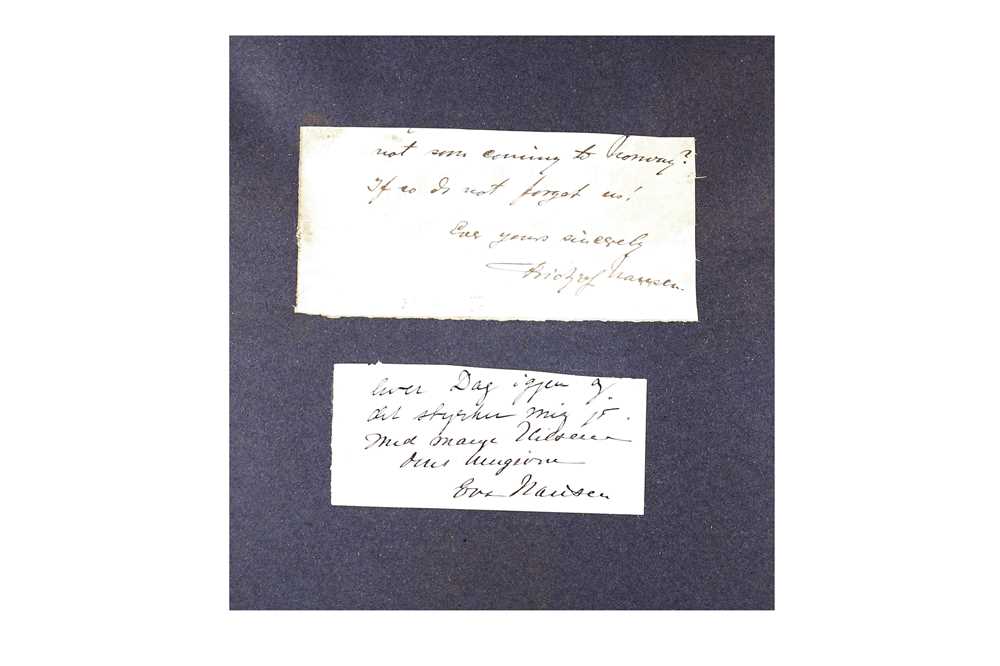 not soon coming to Norway?
If so do not forget us!
Ever yours sincerely
Fridtjof Nansen.
hver Dag igjen og
det styrker mig jo.
Med mange Hilsener
Deres hengivne
Eva Nansen